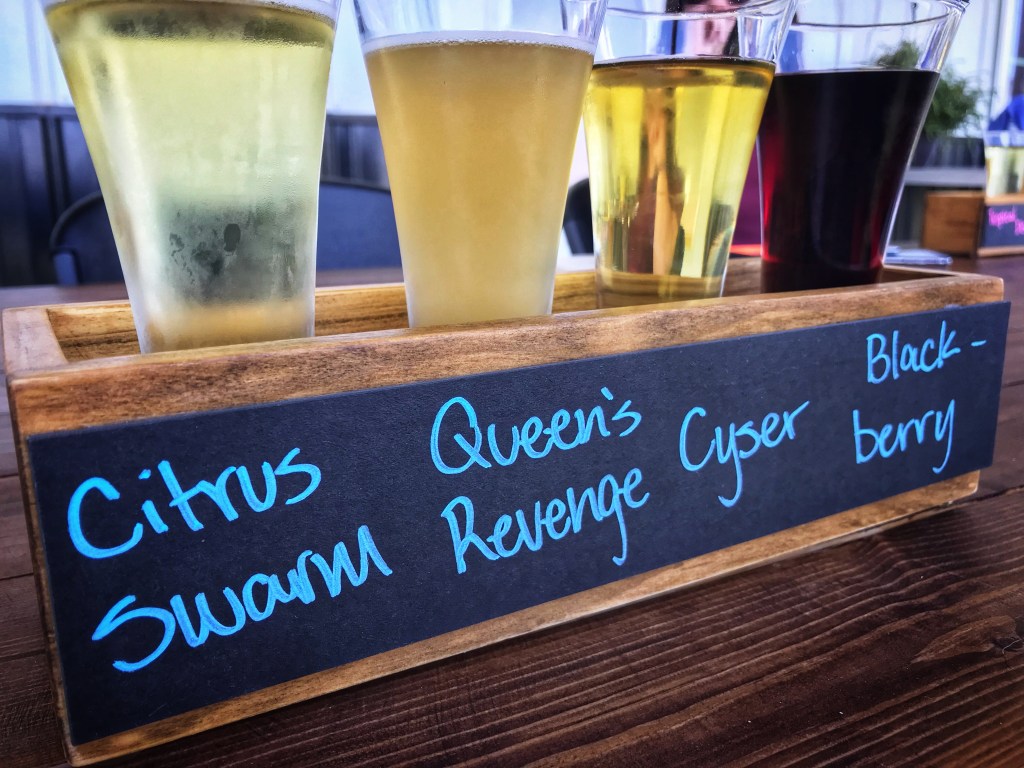 Citrus
Swarm
Queen's
Revenge
Cyser
Black-
berry